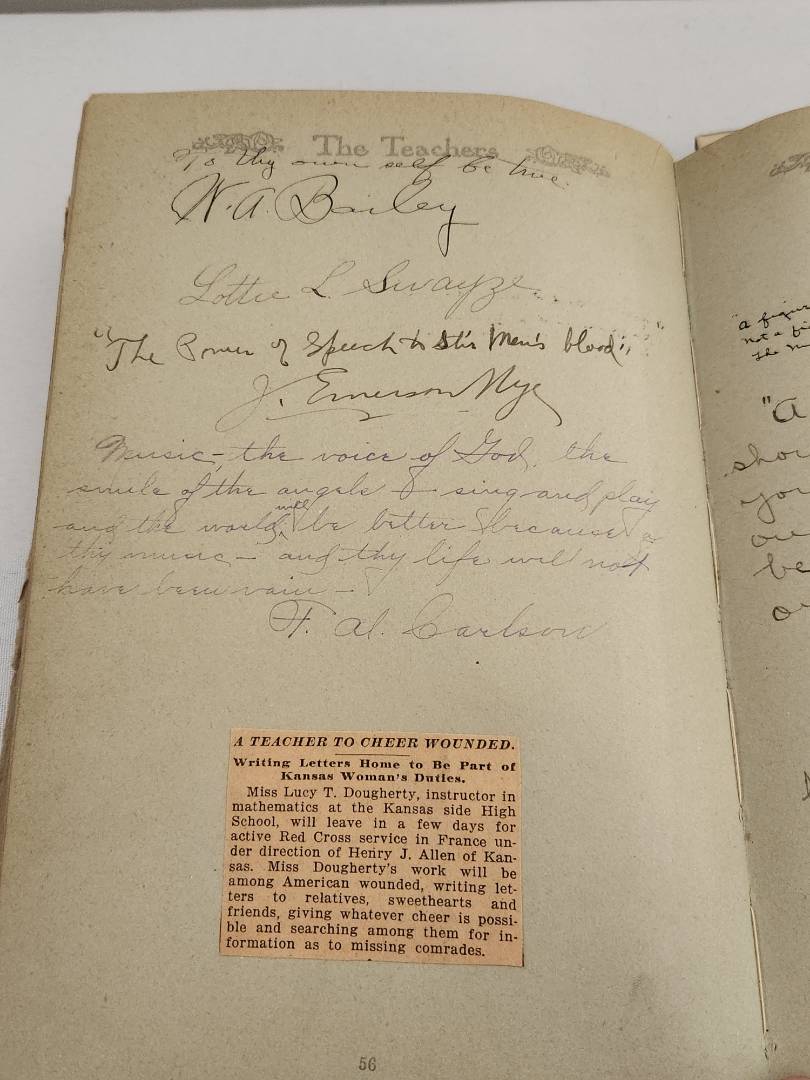 The Teachers
To thy own self be true.
W. A. Bailey
Lottie L. Swayze
"The Power of Speech to stir Men's blood."
J. Emerson Nye
Music, the voice of God, the
smile of the angels sing and play
and the world will be better because
thy music — and thy life will not
have been vain —
F. Al. Carlson
A TEACHER TO CHEER WOUNDED.
Writing Letters Home to Be Part of
Kansas Woman's Duties.
Miss Lucy T. Dougherty, instructor in
mathematics at the Kansas side High
School, will leave in a few days for
active Red Cross service in France un-
der direction of Henry J. Allen of Kan-
sas. Miss Dougherty's work will be
among American wounded, writing let-
ters to relatives, sweethearts and
friends, giving whatever cheer is possi-
ble and searching among them for in-
formation as to missing comrades.
56
"a
not a
the
"a
you
be